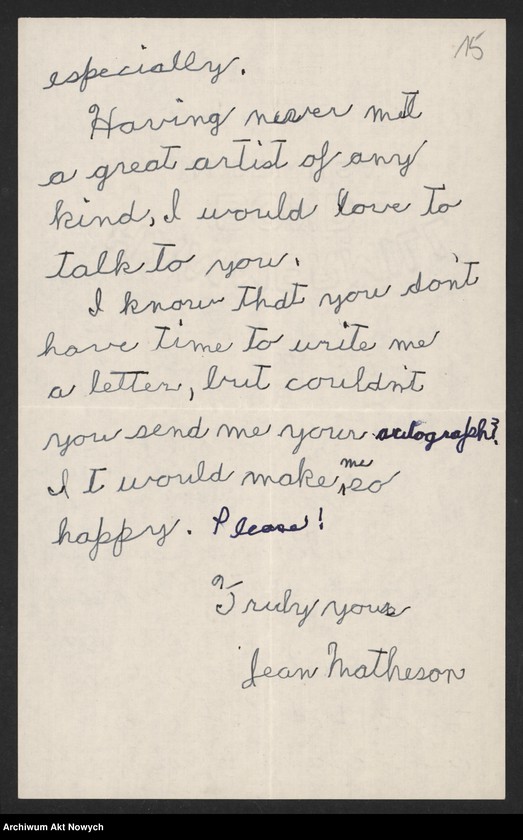 15
especially.
Having never met
a great artist of any
kind, I would love to
talk to you.
I know that you don't
have time to write me
a letter, but couldn't
you send me your autograph?
I I would make me so
happy. Please!
Truly yours
Jean Matheson
Archiwum Akt Nowych